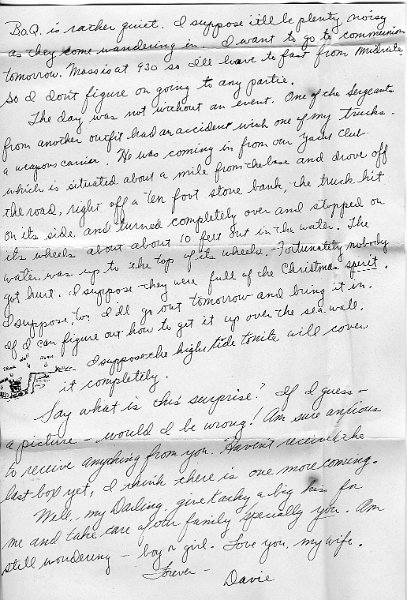 B.O.Q. is rather quiet. I suppose it'll be plenty noisy
as they come wandering in. I want to go to communion
tomorrow. Mass is at 930 so I'll have to fast from Midnite.
So I don't figure on going to any partie.
The day was not without an event. One of the Sergeants
from another outfit had an accident with one of my trucks.
a weapons carrier. He was coming in from our Yacht Club
which is situated about a mile from the base and drove off
the road, right off a ten foot stone bank, the truck hit
on its side and turned completely over and stopped on
it's wheels about about 10 feet out in the water. The
water was up to the top of its wheels. Fortunately nobody
got hurt. I suppose they were full of the Christmas spirit.
I suppose, too, I'll go out tomorrow and bring it in.
If I can figure out how to get it up over the sea wall.
I suppose the high tide tonite will cover
it completely.
Say what is this surprise? If I guess –
a picture – would I be wrong! Am sure anxious
to receive anything from you. Haven't received the
last box yet, I think there is one more coming.
Well, my Darling, give a big kiss for
me and take care of your family 'specially you. Am
still wondering – boy or girl. Love you, my wife.
Forever –
Davie